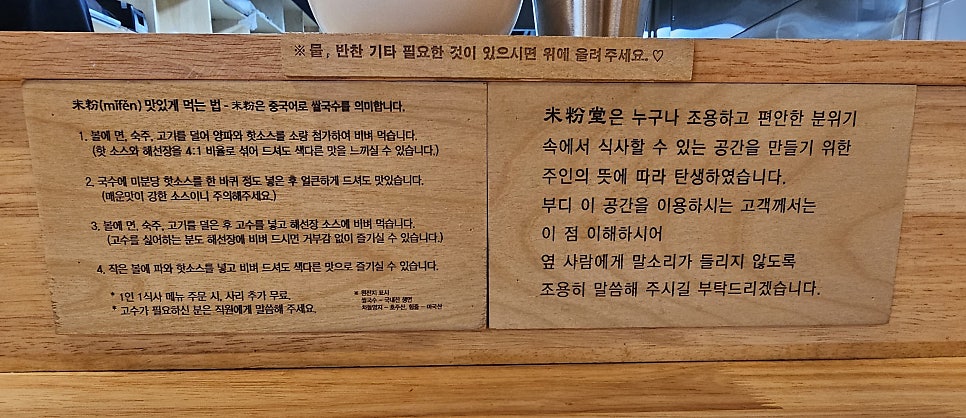 ※물, 반찬 기타 필요한 것이 있으시면 위에 올려주세요.♡
米粉(mǐfěn) 맛있게 먹는 법 - 米粉은 중국어로 쌀국수를 의미합니다.
1. 볼에 면, 숙주, 고기를 덜어 양파와 핫소스를 소량 첨가하여 비벼 먹습니다.
(핫 소스와 해선장을 4:1 비율로 섞어 드셔도 색다른 맛을 느끼실 수 있습니다.)
2. 국수에 미분당 핫소스를 한 바퀴 정도 넣은 후 얼큰하게 드셔도 맛있습니다.
(매운맛이 강한 소스이니 주의해주세요.)
3. 볼에 면, 숙주, 고기를 덜은 후 고수를 넣고 해선장 소스에 비벼 먹습니다.
(고수를 싫어하는 분도 해선장에 비벼 드시면 거부감 없이 즐기실 수 있습니다.)
4. 작은 볼에 파와 핫소스를 넣고 비벼 드셔도 색다른 맛으로 즐기실 수 있습니다.
* 1인 1식사 메뉴 주문 시, 사리 추가 무료.
* 고수가 필요하신 분은 직원에게 말씀해 주세요.
※ 원산지 표시
쌀국수 - 국내산 생면
차돌양지 - 호주산, 힘줄 - 미국산
米粉堂은 누구나 조용하고 편안한 분위기
속에서 식사할 수 있는 공간을 만들기 위한
주인의 뜻에 따라 탄생하였습니다.
부디 이 공간을 이용하시는 고객께서는
이 점 이해하시어
옆 사람에게 말소리가 들리지 않도록
조용히 말씀해 주시길 부탁드리겠습니다.